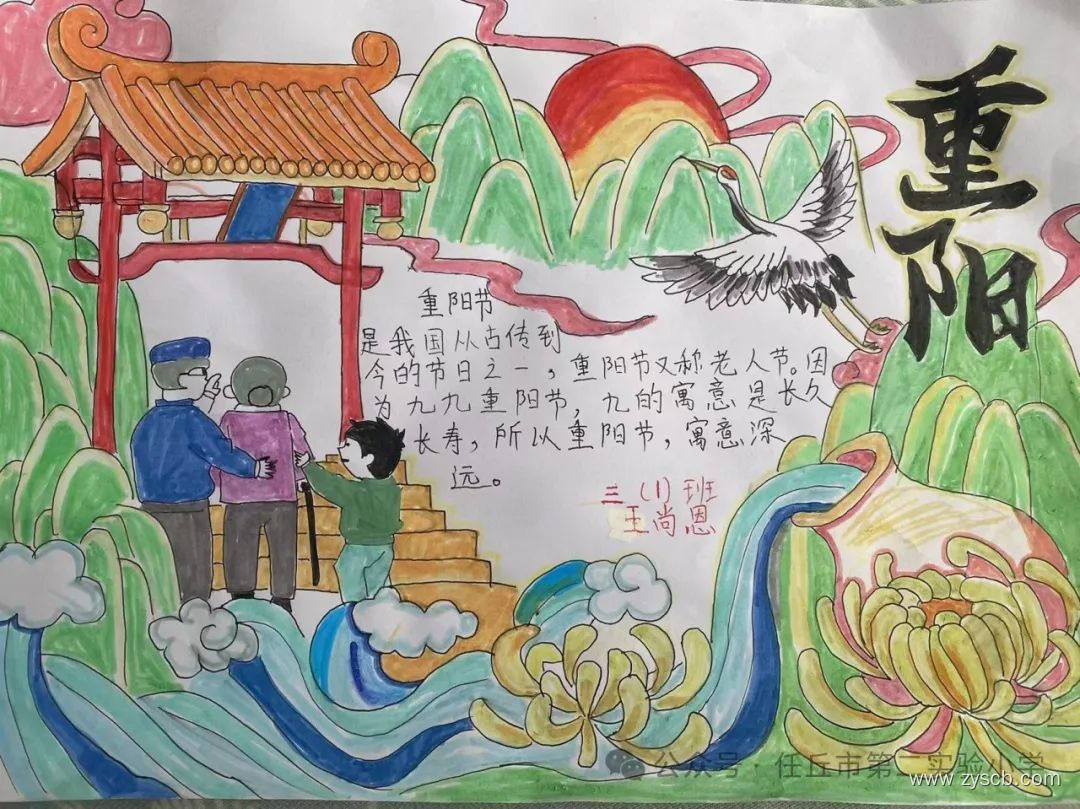 重阳
重阳节
是我国从古传到
今的节日之一，重阳节又称老人节。因
为九九重阳节，九的寓意是长久
长寿，所以重阳节，寓意深
远。
三（1）班
王尚恩
公众号·任丘市第二实验小学
www.zyscb.com